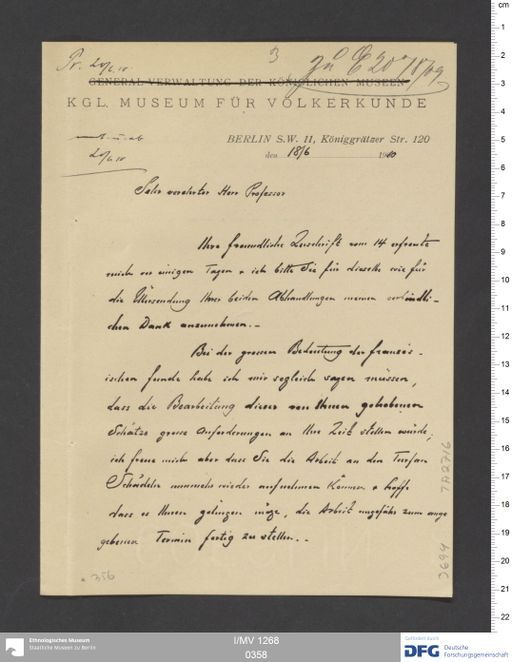 Pr. 20/6.10.
3
zu E 20 / 09
GENERAL-VERWALTUNG DER KÖNIGLICHEN MUSEEN
KGL. MUSEUM FÜR VÖLKERKUNDE
BERLIN S.W. 11, Königgrätzer Str. 120
20/6.10
den 18/6 1910
Sehr verehrter Herr Professor
Ihre freundliche Zuschrift vom 14 erfreute
mich vor einigen Tagen + ich bitte Sie für dieselbe wie für
die Übersendung Ihrer beiden Abhandlungen meinen verbindli-
chen Dank anzunehmen.-
Bei der grossen Bedeutung der französ-
ischen Funde habe ich mir sogleich sagen müssen,
dass die Bearbeitung dieser von Ihnen gehobenen
Schätze grosse Anforderungen an Ihre Zeit stellen würde,
ich freue mich aber dass Sie die Arbeit an den Turfan
Schädeln nunmehr wieder aufnehmen können + hoffe
dass es Ihnen gelingen möge, die Arbeit ungefähr zum ange
gebenen Termin fertig zu stellen..
356
TA 2716
3699
cm
1
2
3
4
5
6
7
8
9
10
11
12
13
14
15
16
17
18
19
20
21
22
Ethnologisches Museum
Staatliche Museen zu Berlin
I/MV 1268
0358
Gefördert durch
DFG
Deutsche
Forschungsgemeinschaft